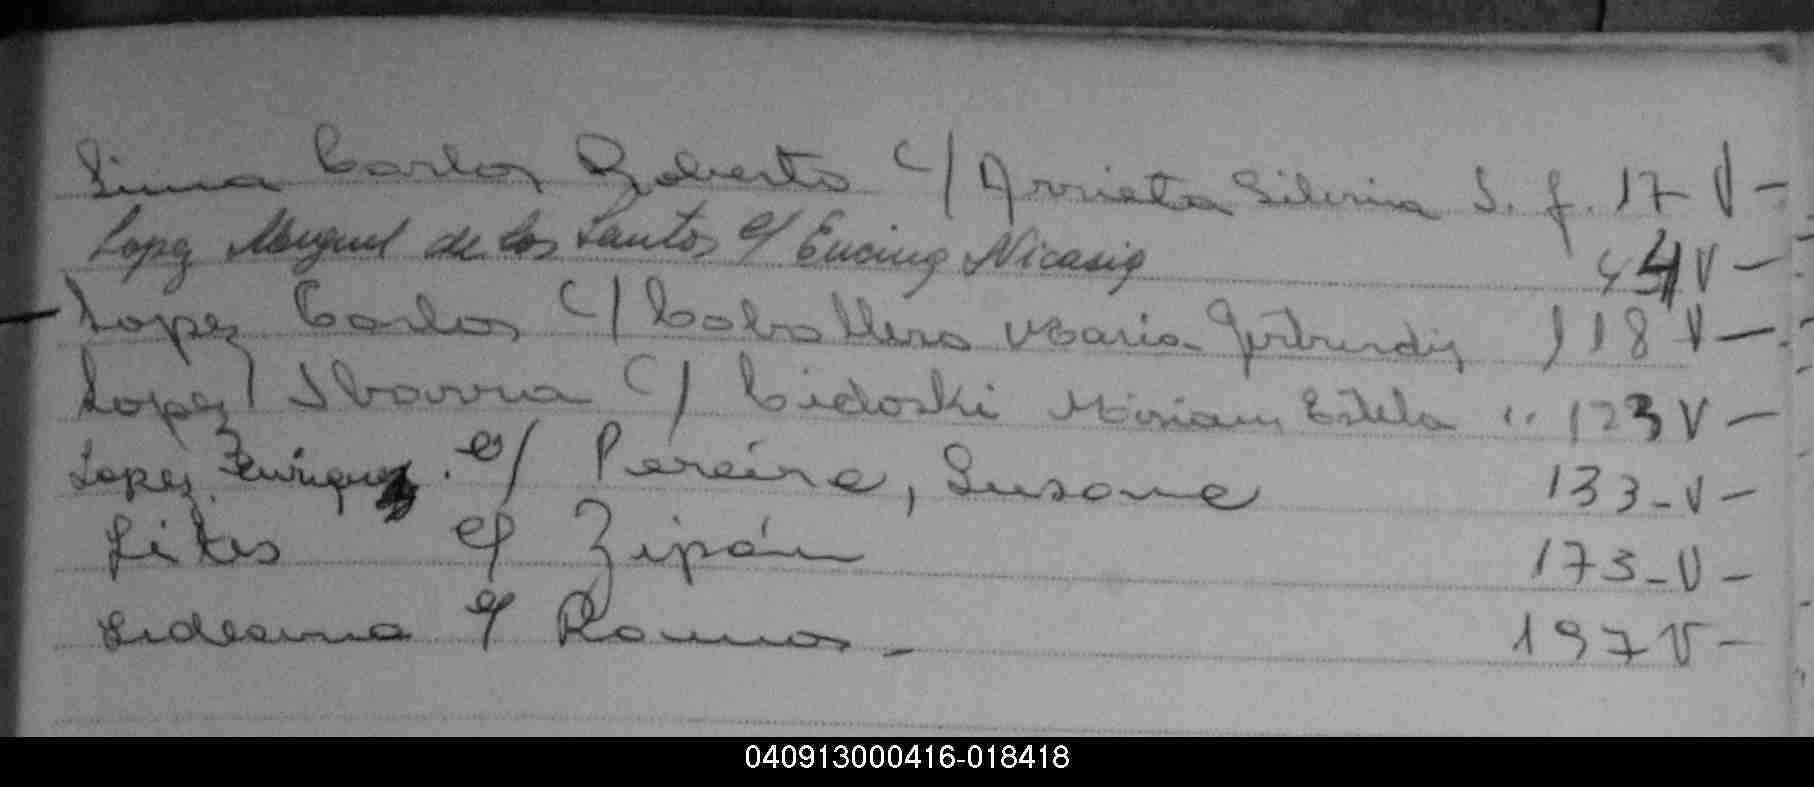 Lima Carlos Roberto c/ Arrieta Silvina S. f. 17 V -
Lopez Miguel de los Santos c/ Encina Nicasia 44 V -
Lopez Carlos c/ Caballero Maria Gertrudis 118 V -
Lopez Ibarra c/ Cidoski Miriam Estela " 123 V -
Lopez Enrique c/ Pereira, Susana 133 - V -
Lites c/ Zipán 173 - V -
c/ Ramos - 197 V -
040913000416-018418